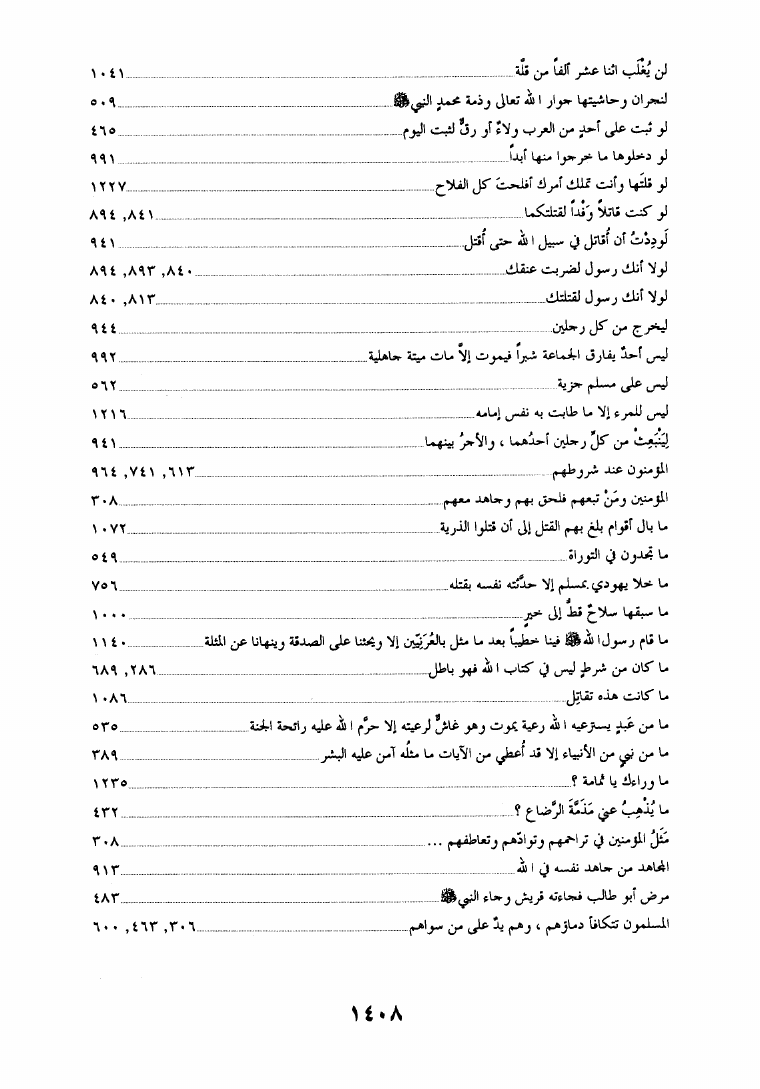 لن يُغْلَب اثنا عشر ألفاً من قلّة ١٠٤١
لنجران وحاشيتها جوار الله تعالى وذمة محمدٍ النبي ﷺ ٥٠٩
لو ثبت على أحدٍ من العرب ولاءٌ أو رقٌّ لثبت اليوم ٤٦٥
لو دخلوها ما خرجوا منها أبداً ٩٩١
لو قلتَها وأنت تملك أمرك أفلحتَ كل الفلاح ١٢٢٧
لو كنت قاتلاً وَفْداً لقتلتكما ٨٤١, ٨٩٤
لَودِدْتُ أن أُقاتل في سبيل الله حتى أُقتل ٩٤١
لولا أنك رسول لضربت عنقك ٨٤٠, ٨٩٣, ٨٩٤
لولا أنك رسول لقتلتك ٨١٣, ٨٤٠
ليخرج من كل رجلين ٩٤٤
ليس أحدٌ يفارق الجماعة شبراً فيموت إلاّ مات ميتة جاهلية ٩٩٢
ليس على مسلم جزية ٥٦٢
ليس للمرء إلا ما طابت به نفس إمامه ١٢١٦
لِيَنْبَعِثْ من كلِّ رجلين أحدُهما ، والأجرُ بينهما ٩٤١
المؤمنون عند شروطهم ٦١٣, ٧٤١, ٩٦٤
المؤمنين ومَنْ تبعهم فلحق بهم وجاهد معهم ٣٠٨
ما بال أقوام بلغ بهم القتل إلى أن قتلوا الذرية ١٠٧٢
ما تجدون في التوراة ٥٤٩
ما خلا يهودي بمسلم إلا حدَّثته نفسه بقتله ٧٥٦
ما سبقها سلاحٌ قطُّ إلى خيرٍ ١٠٠٠
ما قام رسول الله ﷺ فينا خطيباً بعد ما مثل بالعُرَنِيّين إلا ويحثنا على الصدقة وينهانا عن المثلة ١١٤٠
ما كان من شرطٍ ليس في كتاب الله فهو باطل ٢٨٦, ٦٨٩
ما كانت هذه تقاتِل ١٠٨٦
ما من عَبدٍ يسترعيه الله رعية يموت وهو غاشٌّ لرعيته إلا حرَّم الله عليه رائحة الجنة ٥٣٥
ما من نبيٍ من الأنبياء إلا قد أُعطي من الآيات ما مثلُه آمن عليه البشر ٣٨٩
ما وراءك يا ثمامة ؟ ١٢٣٥
ما يُذْهِبُ عني مَذَمَّةَ الرَّضاع ؟ ٤٣٢
مَثَلُ المؤمنين في تراحمهم وتوادّهم وتعاطفهم ... ٣٠٨
المجاهد من جاهد نفسه في الله ٩١٣
مرض أبو طالب فجاءته قريش وجاء النبي ﷺ ٤٨٣
المسلمون تتكافأ دماؤهم ، وهم يدٌ على من سواهم ٣٠٦, ٤٦٣, ٦٠٠
١٤٠٨